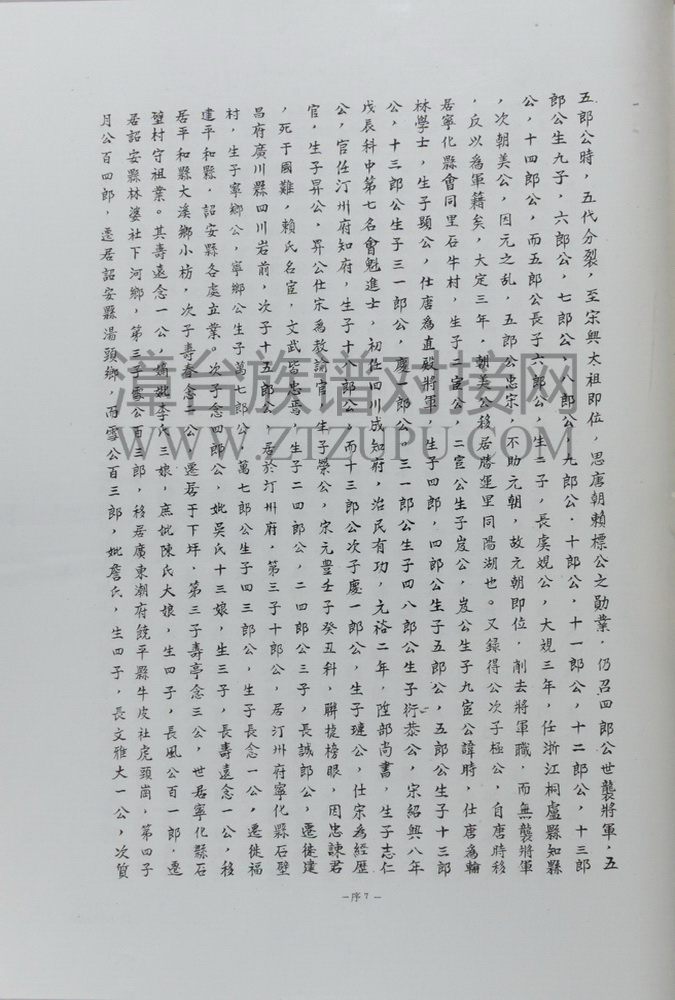 五郎公時，五代分裂，至宋興太祖即位，思唐朝賴標公之勛業，仍召四郎公世襲將軍，五
郎公生九子，六郎公，七郎公，八郎公，九郎公．十郎公，十一郎公，十二郎公，十三郎
公，十四郎公，而五郎公長子六郎公，生二子，長虞媯公，大規三年，任浙江桐廬縣知縣
，次朝美公，因元之乱，五郎公忠宋，不助元朝，故元朝即位，削去將軍職，而無襲將軍
，反以為軍籍矣，大定三年，朝美公移居勝運里同陽湖也。又錄得公次子極公，自唐時移
居寧化縣會同里石牛村，生子二宦公，二宦公生子岌公，岌公生子九宦公諱時，仕唐為翰
林學士，生子顯公，仕唐為直殿將軍，生子四郎，四郎公生子五郎公，五郎公生子十三郎
公，十三郎公生子三一郎公，慶一郎公。三一郎公生子四八郎公生子衍恭公，宋紹興八年
戊辰科中第七名會魁進士，初任四川成知府，治民有功，元祐二年，陞部尚書，生子志仁
公，官任汀州府知府，生子十郎公，而十三郎公次子慶一郎公，生子璉公，仕宋為經歷
官，生子昇公，昇公仕宋為教諭官，生子榮公，宋元豐壬子癸丑科，聯捷榜眼，因忠諫君
，死于國難，賴氏名宦，文武皆忠焉，生子二四郎公，二四郎公三子，長誠郎公，遷徙達
昌府廣川縣四川岩前，次子十五郎公，居於汀州府，第三子十郎公，居汀州府寧化縣石壁
村，生子寧鄉公，寧鄉公生子萬七郎公，萬七郎公生子四三郎公，生子長念一公，遷徙福
建平和縣．詔安縣各處立業。次子念四郎公，妣吳氏十三娘，生三子，長壽遠念一公，移
居平和縣大溪鄉小枋，次子壽春念二公，遷居于下坪．第三子壽亭念三公，世居寧化縣石
壁村守祖業。其壽遠念一公，媯妣李氏三娘，庶妣陳氏大娘，生四子，長風公百一郎．遷
居詔安縣林婆社下河鄉，第三子雪公百三郎，移居廣東潮府饒平縣牛皮社虎頭崗，第四子
月公百四郎，遷居詔安縣湯頭鄉，而雪公百三郎，妣詹氏，生四子，長文雅大一公，次質
－序7－
漳台族谱对接网
WWW.ZTZUPU.COM